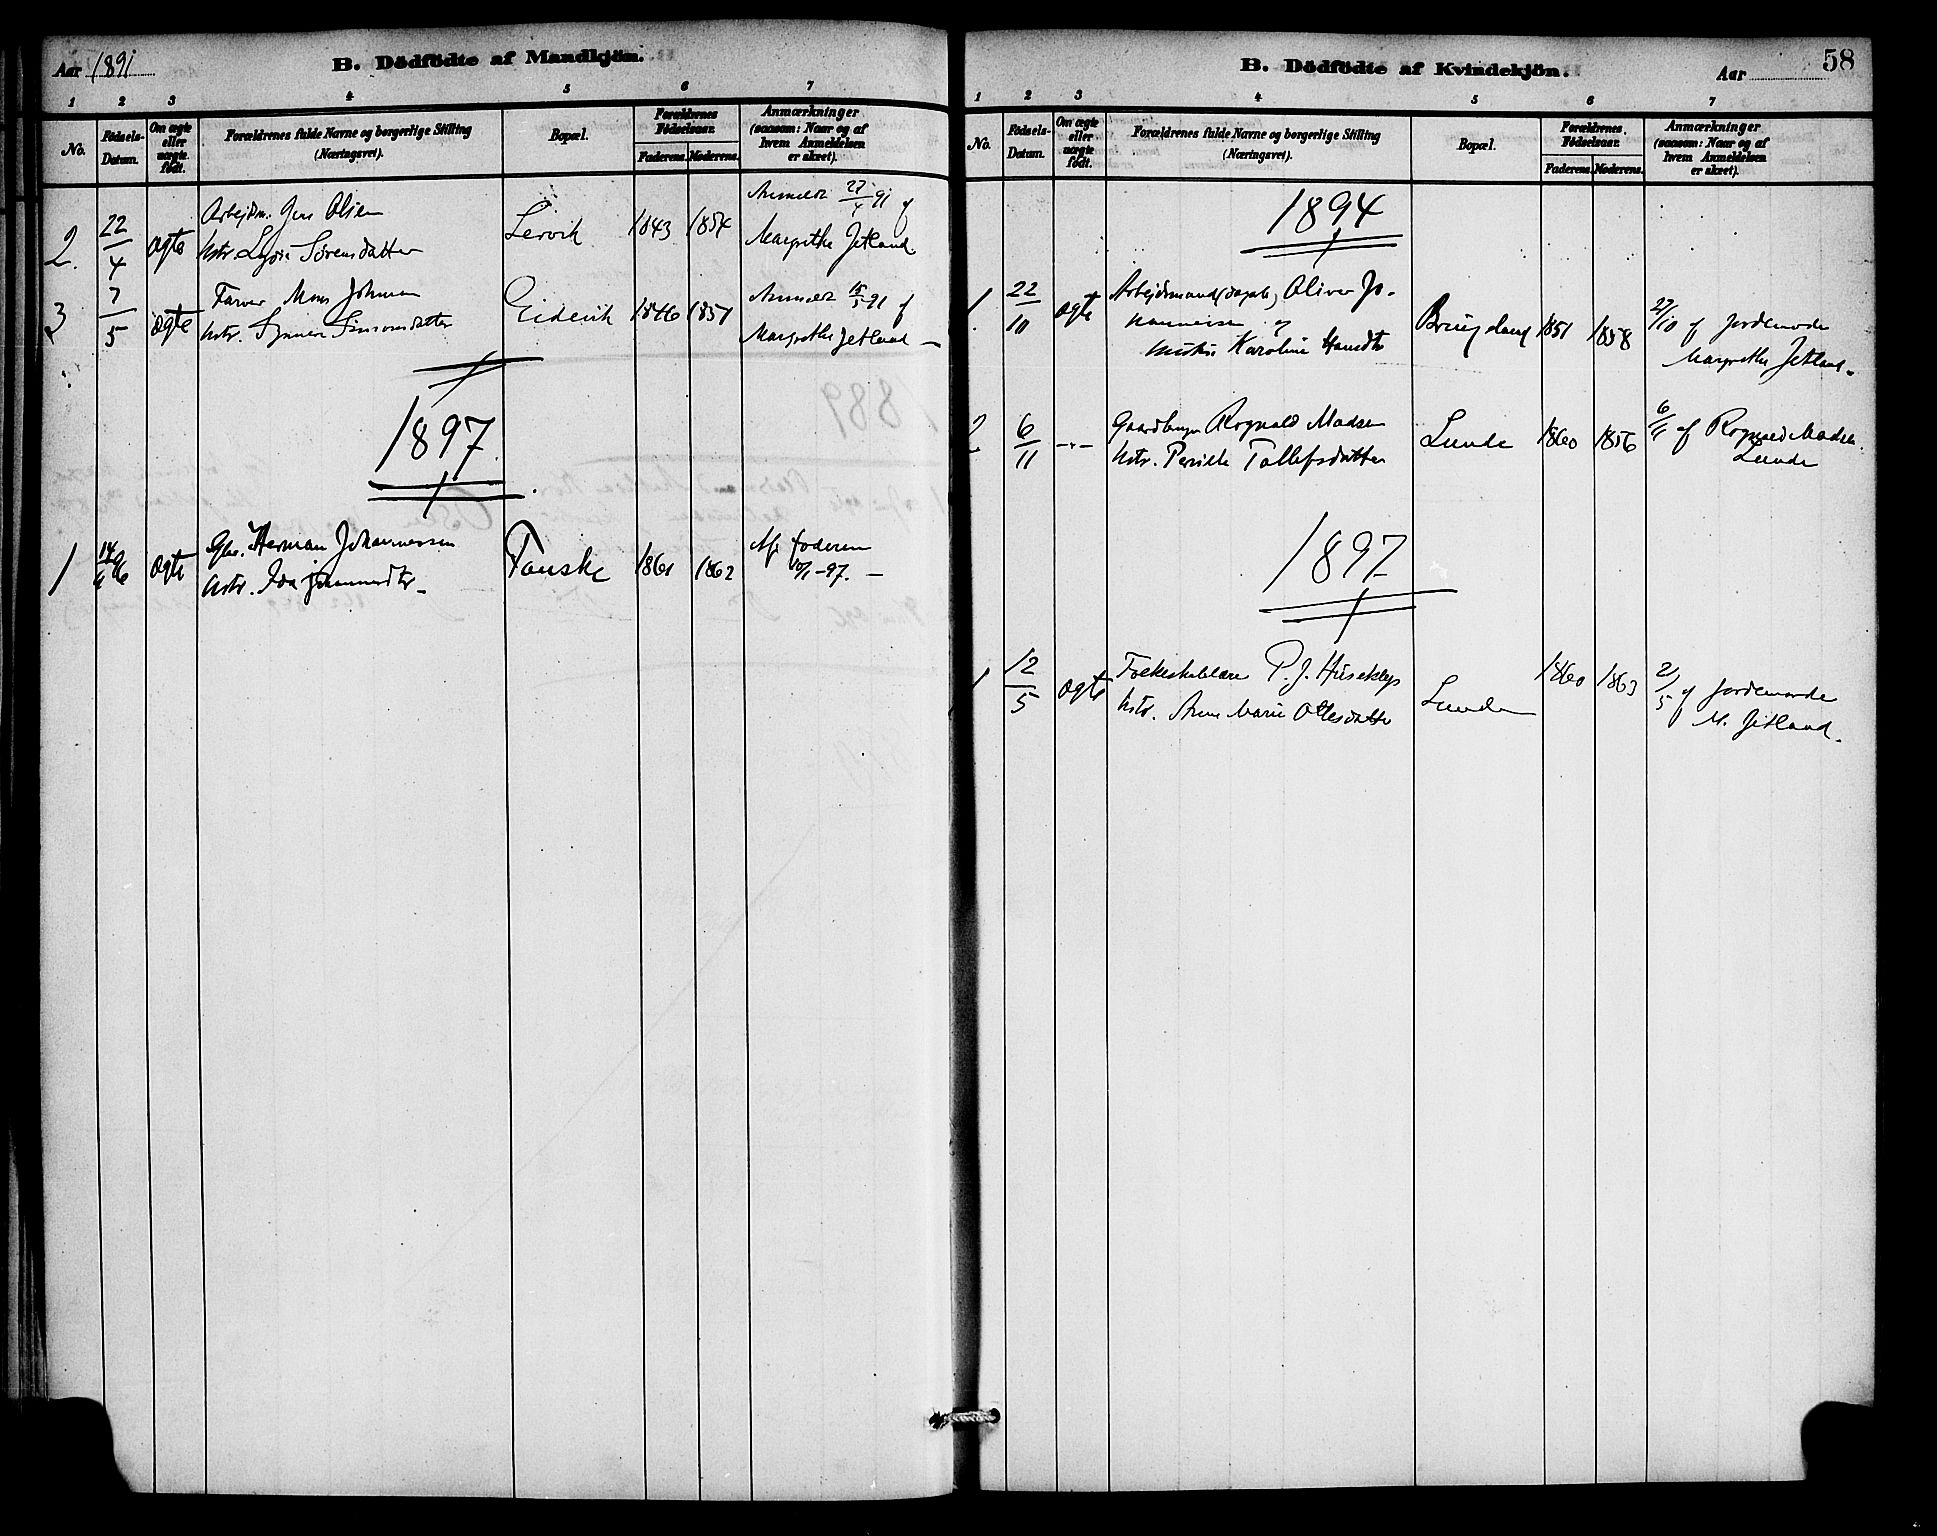 Aar 1891
B. Dödfödte af Mandkjön.
1 2 3 4 5 6 7
No.
Födsels-Datum.
Om ægte eller uægte födt.
Forældrenes fulde Navne og borgerlige Stilling (Næringsvei).
Bopæl.
Forældrenes Födselsaar.
Faderens. Moderens.
Anmærkninger (saasom: Naar og af hvem Anmeldelsen er skeet).
2. 22/4 ægte Arbejdsm. Jens Olsen Lervik 1843 1854 Anmeldt 27/4 91 af
Hstr. Sörensdatter Margrethe Jetland
3 7/5 ægte Farver Mons Johnsen Eidevik 1846 1851 Anmeldt 15/5 91 af
Hstr. Synneve Simonsdatter Margrethe Jetland
1897
1 14/4 96 ægte Gbr. Herman Johannessen Fauske 1861 1862 Af faderen
Hstr. Ida -97.
58
B. Dödfödte af Kvindekjön.
Aar
1 2 3 4 5 6 7
No.
Födsels-Datum.
Om ægte eller uægte födt.
Forældrenes fulde Navne og borgerlige Stilling (Næringsvei).
Bopæl.
Forældrenes Födselsaar.
Faderens. Moderens.
Anmærkninger (saasom: Naar og af hvem Anmeldelsen er skeet).
1894
1. 22/10 ægte Arbejdsmand Oliver Jo-
hannesen og 1851 1858 27/10 af Jordemoder
Hustru Karoline Hansdtr Margrethe Jetland.
2 6/11 -"- Gaardbruger Rognald Madsen Lunde 1860 1856 6/11 af Rognald Madsen
Hstr. Pernille Tollefsdatter Lunde
1897
1 12/5 ægte P. J. Husekleps Lunde 1860 1863 21/5 af Jordemoder
Hstr. Anne Marie Ottesdatter M. Jetland.